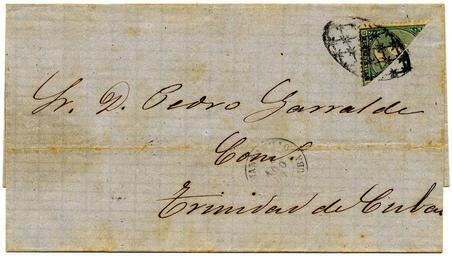 Sr. D. Pedro Garralde
Com.
Trinidad de Cuba
CUBA